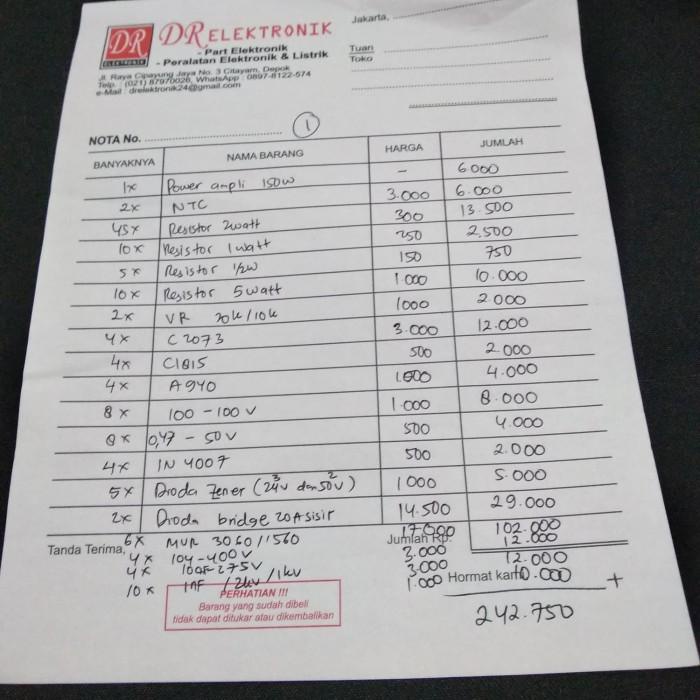 DR
ELEKTRONIK
DR ELEKTRONIK
- Part Elektronik
- Peralatan Elektronik & Listrik
Jl. Raya Cipayung Jaya No. 3 Citayam, Depok
Telp. : (021) 87970026, WhatsApp : 0897-8122-574
e-Mail : drelektronik24@gmail.com
Jakarta,
Tuan
Toko
NOTA No. 1
BANYAKNYA NAMA BARANG HARGA JUMLAH
1x Power ampli 150w - 6.000
2x NTC 3.000 6.000
45x Resistor 2watt 300 13.500
10x Resistor 1watt 250 2.500
5x Resistor 1/2w 150 750
10x Resistor 5watt 1.000 10.000
2x VR 20k/10k 1000 2.000
4x C2073 3.000 12.000
4x C1815 500 2.000
4x A940 1.000 4.000
8x 100-100v 1.000 8.000
8x 0,47-50v 500 4.000
4x IN4007 500 2.000
5x Dioda Zener (24v3 dan 50v2) 1000 5.000
2x Dioda bridge 20A sisir 14.500 29.000
6x MUR 3060/1560 17.000 102.000
Tanda Terima, Jumlah Rp.
4x 104-400v 3.000 12.000
4x 275v 3.000 12.000
10x 1nF /2kv/1kv 1.000 10.000
Hormat kami
+
242.750
PERHATIAN !!!
Barang yang sudah dibeli
tidak dapat ditukar atau dikembalikan